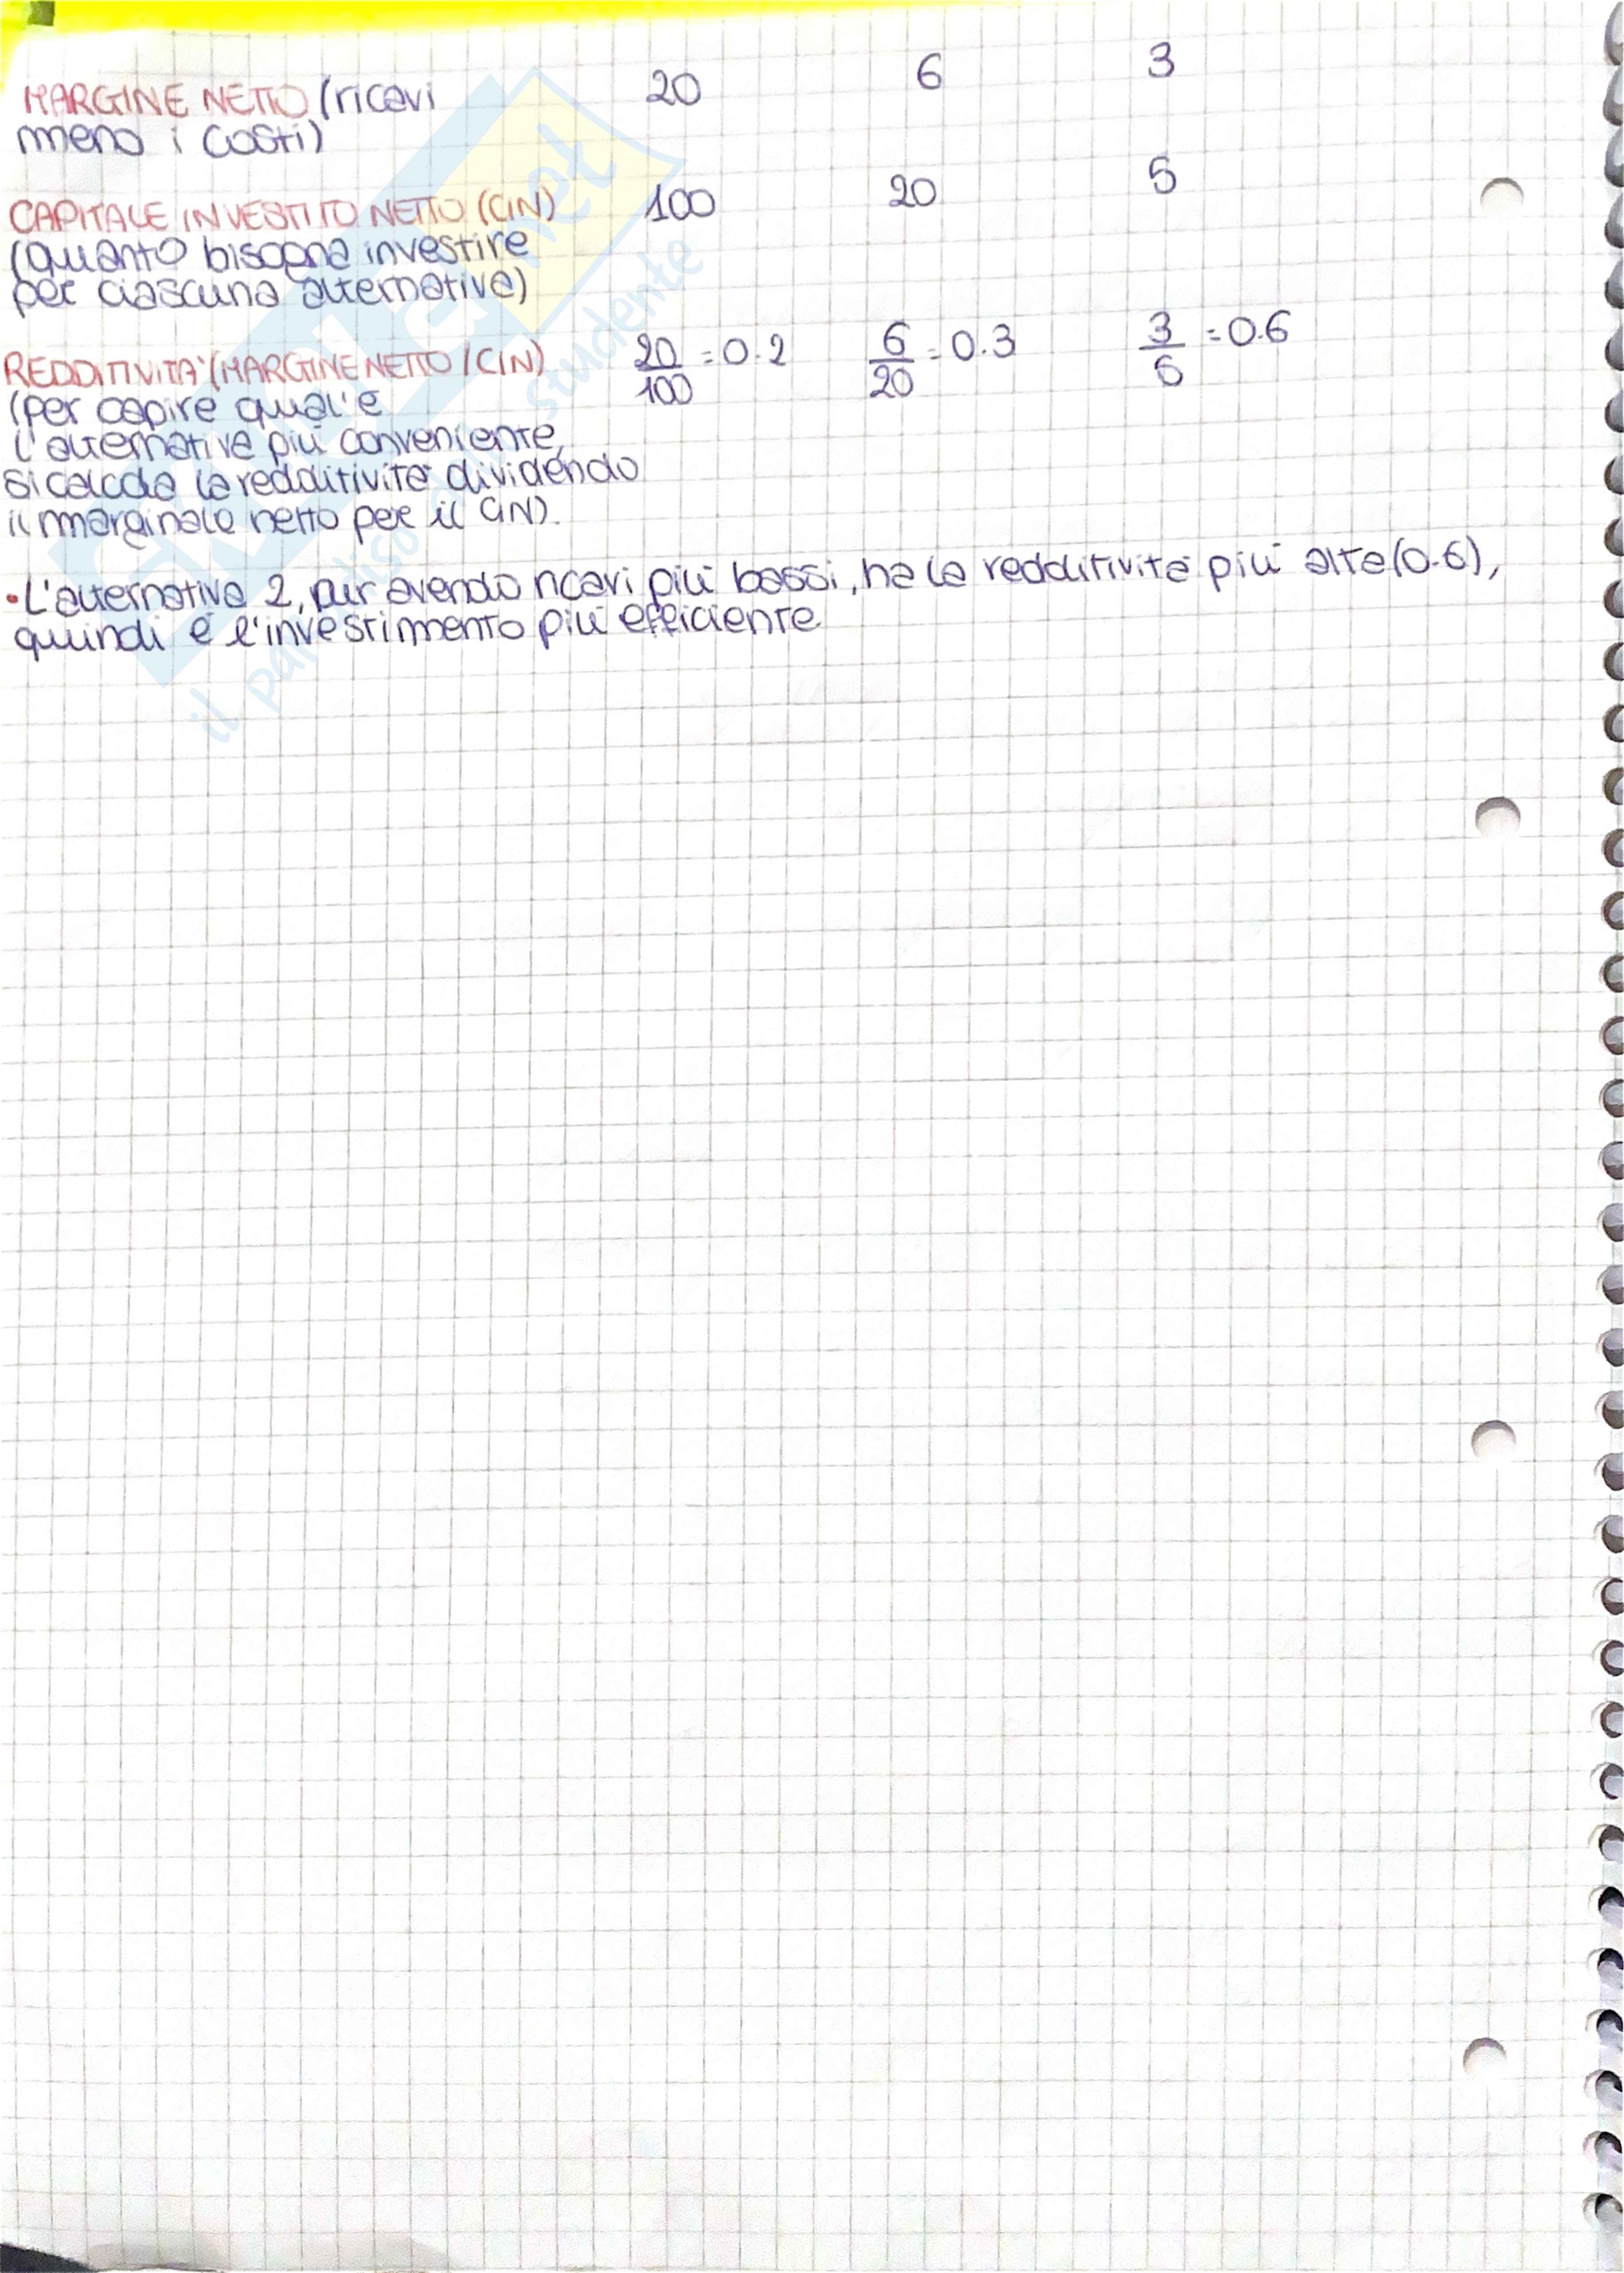 MARGINE NETTO (ricavi 20 6 3
meno i costi)
CAPITALE INVESTITO NETTO (CIN) 100 20 5
(quanto bisogna investire
per ciascuna alternativa)
REDDITIVITA' (MARGINE NETTO / CIN) 20/100 = 0.2 6/20 = 0.3 3/5 = 0.6
(per capire qual'è
l'alternativa più conveniente,
si calcola la redditività dividendo
il marginale netto per il CIN).
• L'alternativa 2, pur avendo ricavi più bassi, ha la redditività più alta (0.6),
quindi è l'investimento più efficiente
SKUOLA.net
il paradiso dello studente